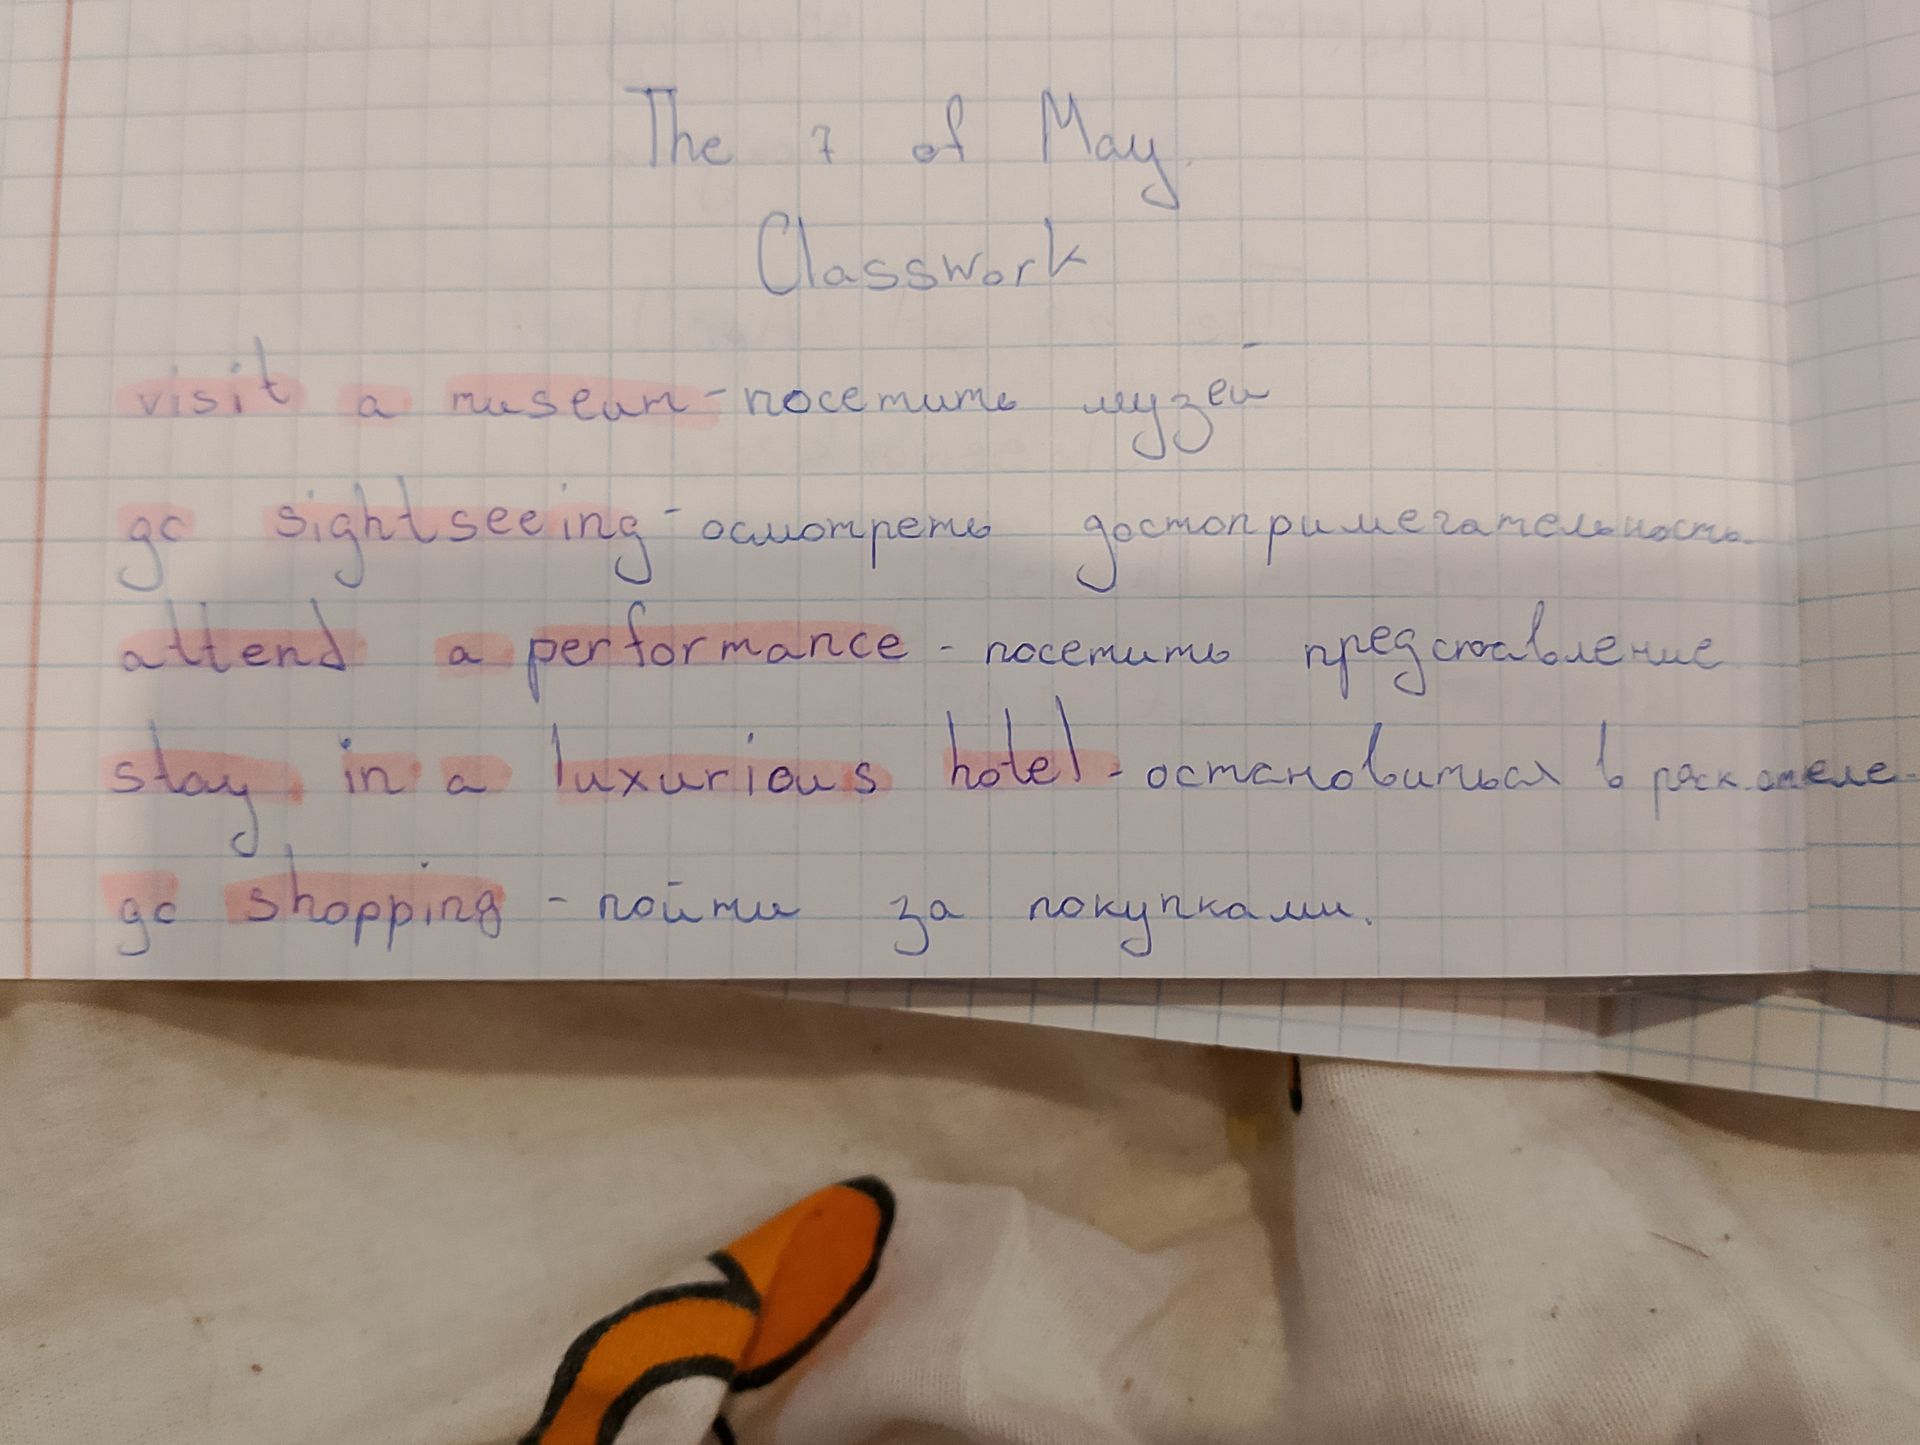 The 7 of May.
Classwork
visit a museum - посетить музей
go sightseeing - осмотреть достопримечательность
attend a performance - посетить представление
stay in a luxurious hotel - остановиться в отеле
go shopping - пойти за покупками.